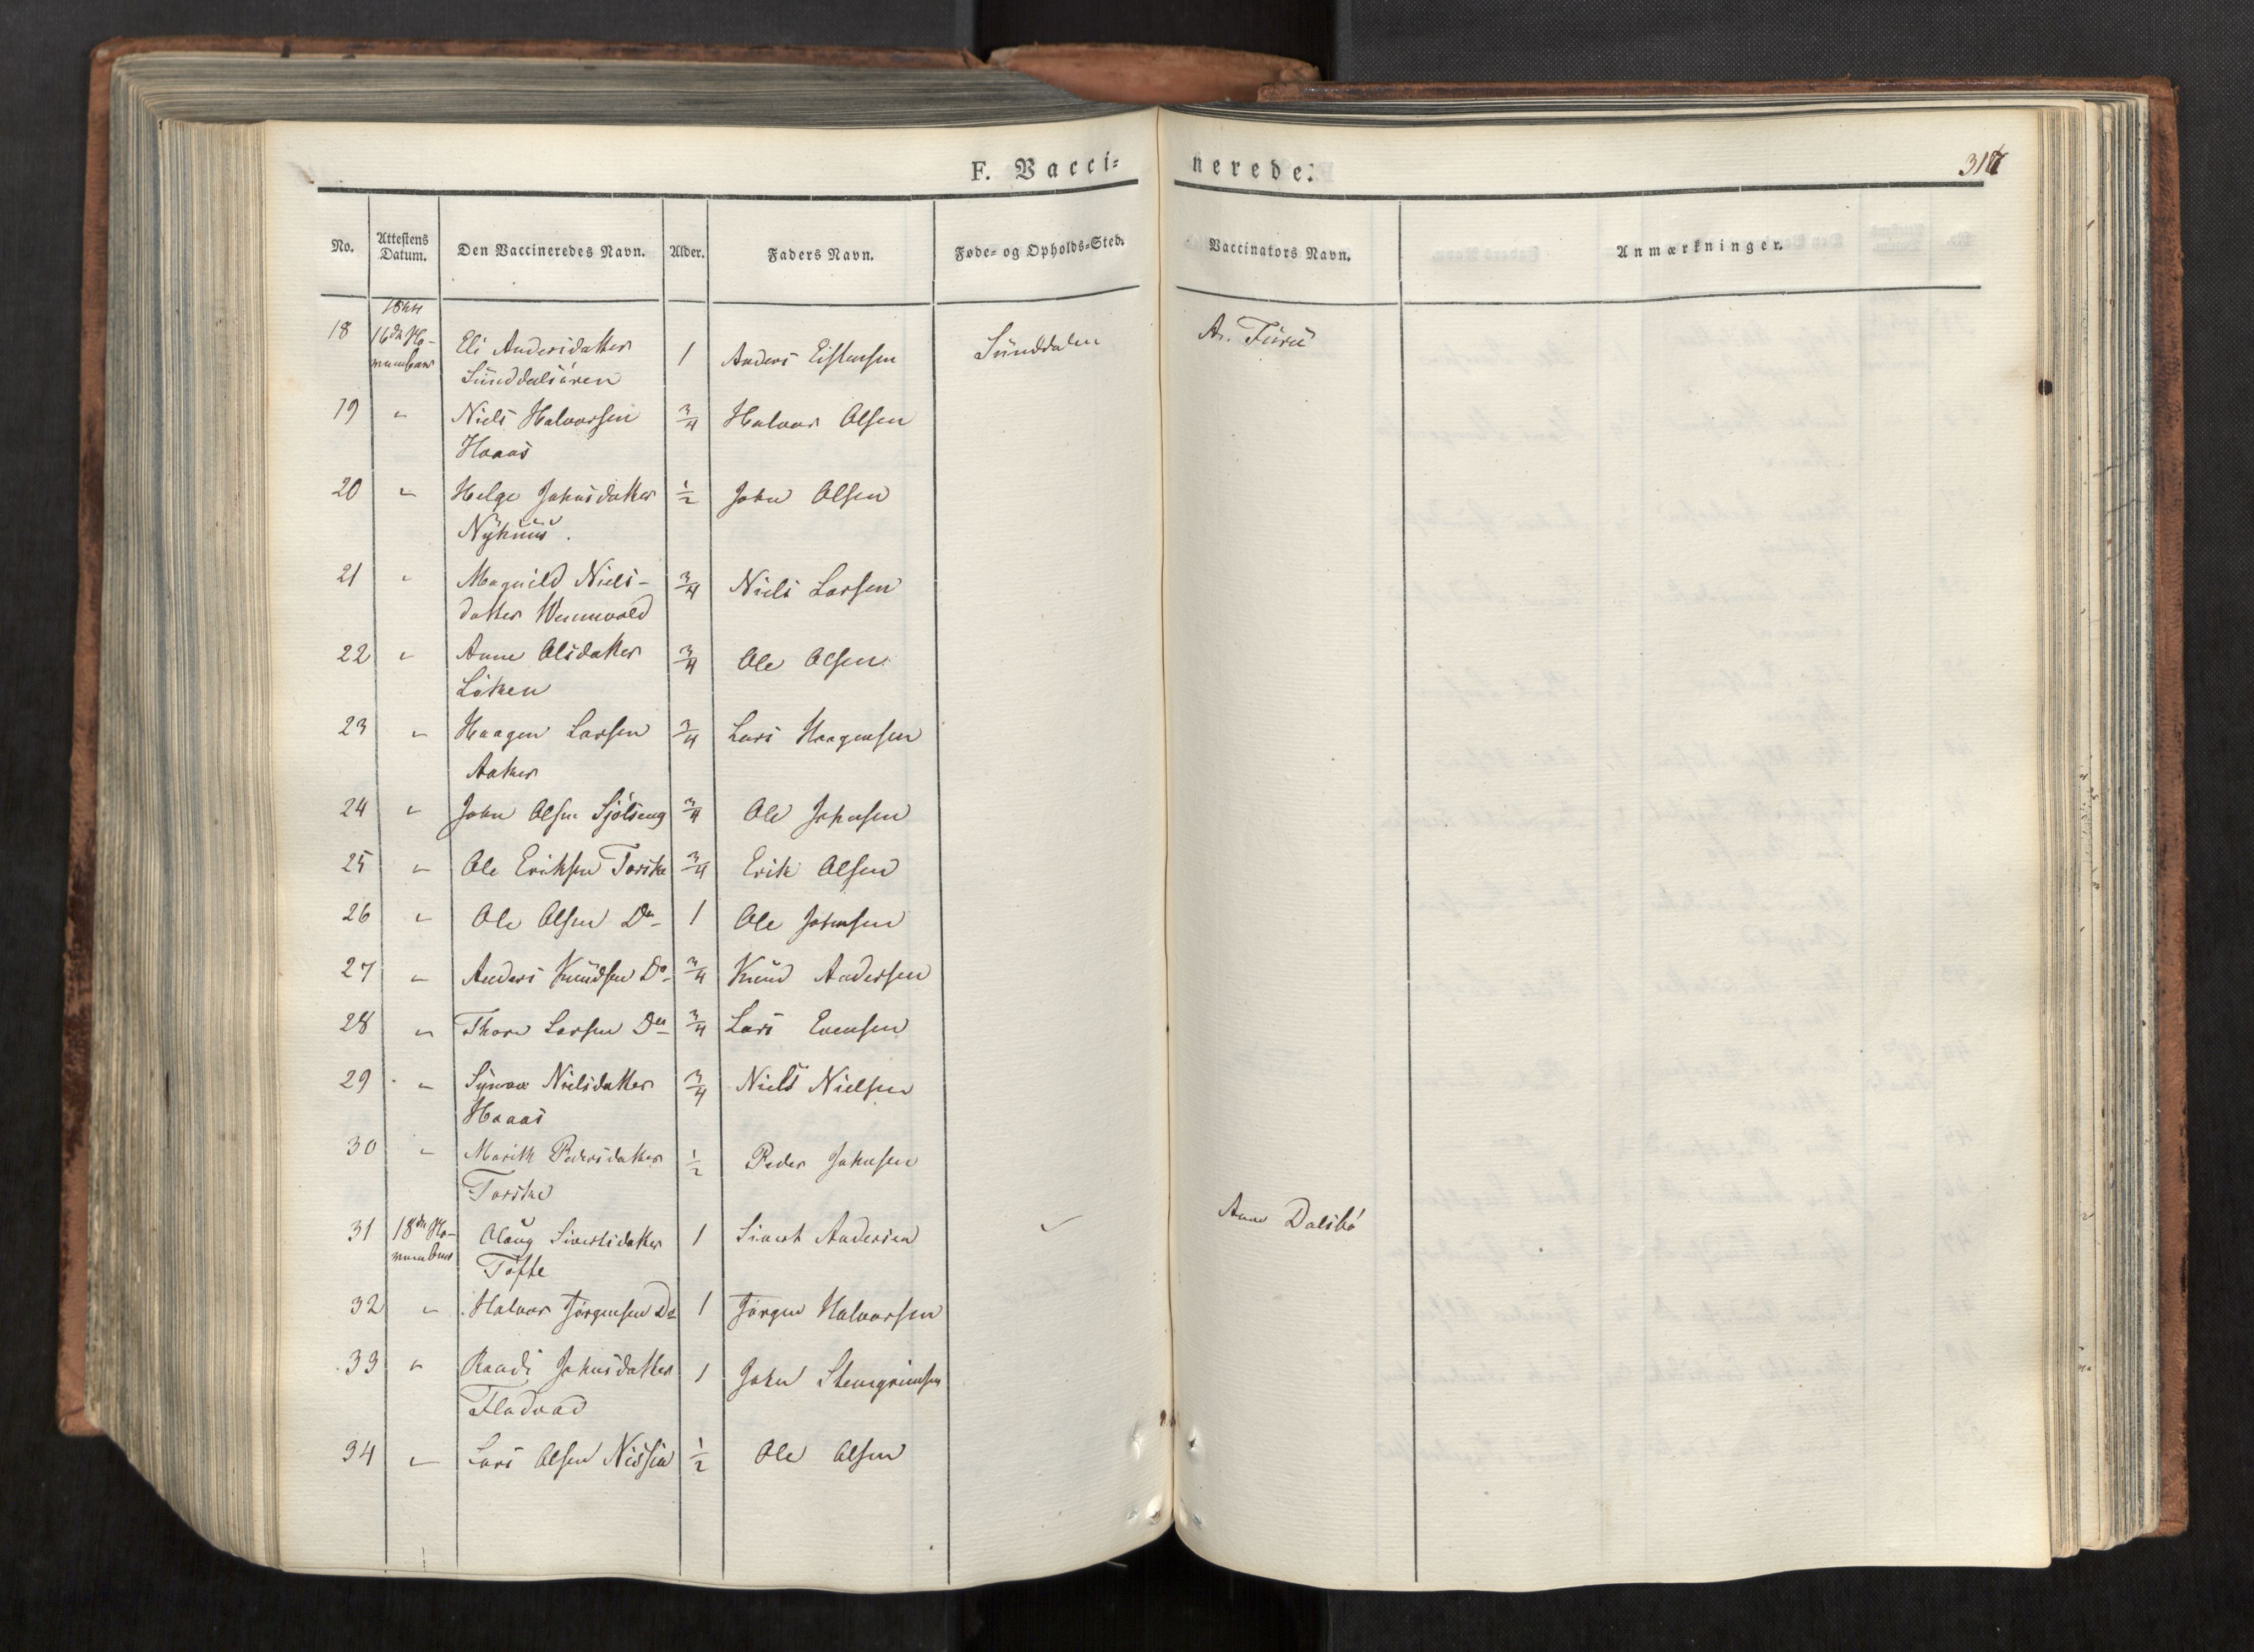 F. Vacci=
nerede.
317
No.
Attestens Datum.
Den Vaccineredes Navn.
Alder.
Faders Navn.
Føde= og Opholds=Sted.
Vaccinators Navn.
Anmærkninger.
1844
18 16de No- Eli Andersdatter 1 Anders Eistensen Sünddalen A. Fürü
vember Sünddalsören
19 " Niels Halvorsen 3/4 Halvor Olsen
Hoaas
20 " Helge Johnsdatter 1/2 John Olsen
Nÿhüüs.
21 " Magnild Niels- 3/4 Niels Larsen
datter Wennevold
22 " Anne Olsdatter 3/4 Ole Olsen
Löken
23 " Haagen Larsen 3/4 Lars Haagensen
Aaker
24 " John Olsen Sjölseng 3/4 Ole Johnsen
25 " Ole Eriksen Torske 3/4 Erik Olsen
26 " Ole Olsen Do 1 Ole Johnsen
27 " Anders Knüdsen Do 3/4 Knüd Andersen
28 " Thore Larsen Do 3/4 Lars Evensen
29 " Sÿnove Nielsdatter 3/4 Niels Nielsen
Hoaas
30 " Marith Pedersdatter 1/2 Peder Johnsen
Torske
31 18de No- Olaüg Sivertsdatter 1 Sivert Andersen Anne Dalsbö
vember Tofte
32 " Halvor Jörgensen Do 1 Jörgen Halvorsen
33 " Randi Johnsdatter 1 John Stengrimsen
Fladvad
34 " Lars Olsen Nisja 1/2 Ole Olsen